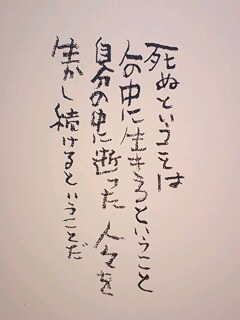 死ぬということは
人の中に生きるということ
自分の中に逝った人々を
生かし続けるということだ